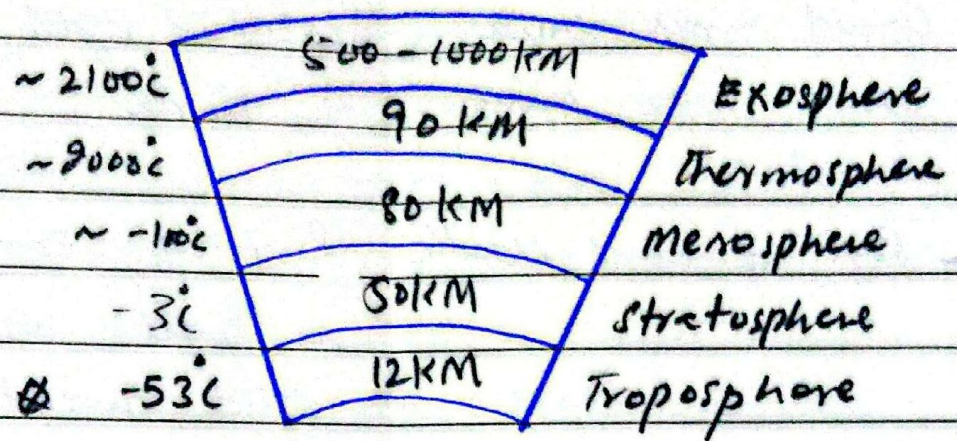 ~ 2100°C 500-1000KM Exosphere
90 KM
~2000°C Thermosphere
80 KM
~ -100°C Mesosphere
-3°C 50KM Stratosphere
-53°C 12KM Troposphore